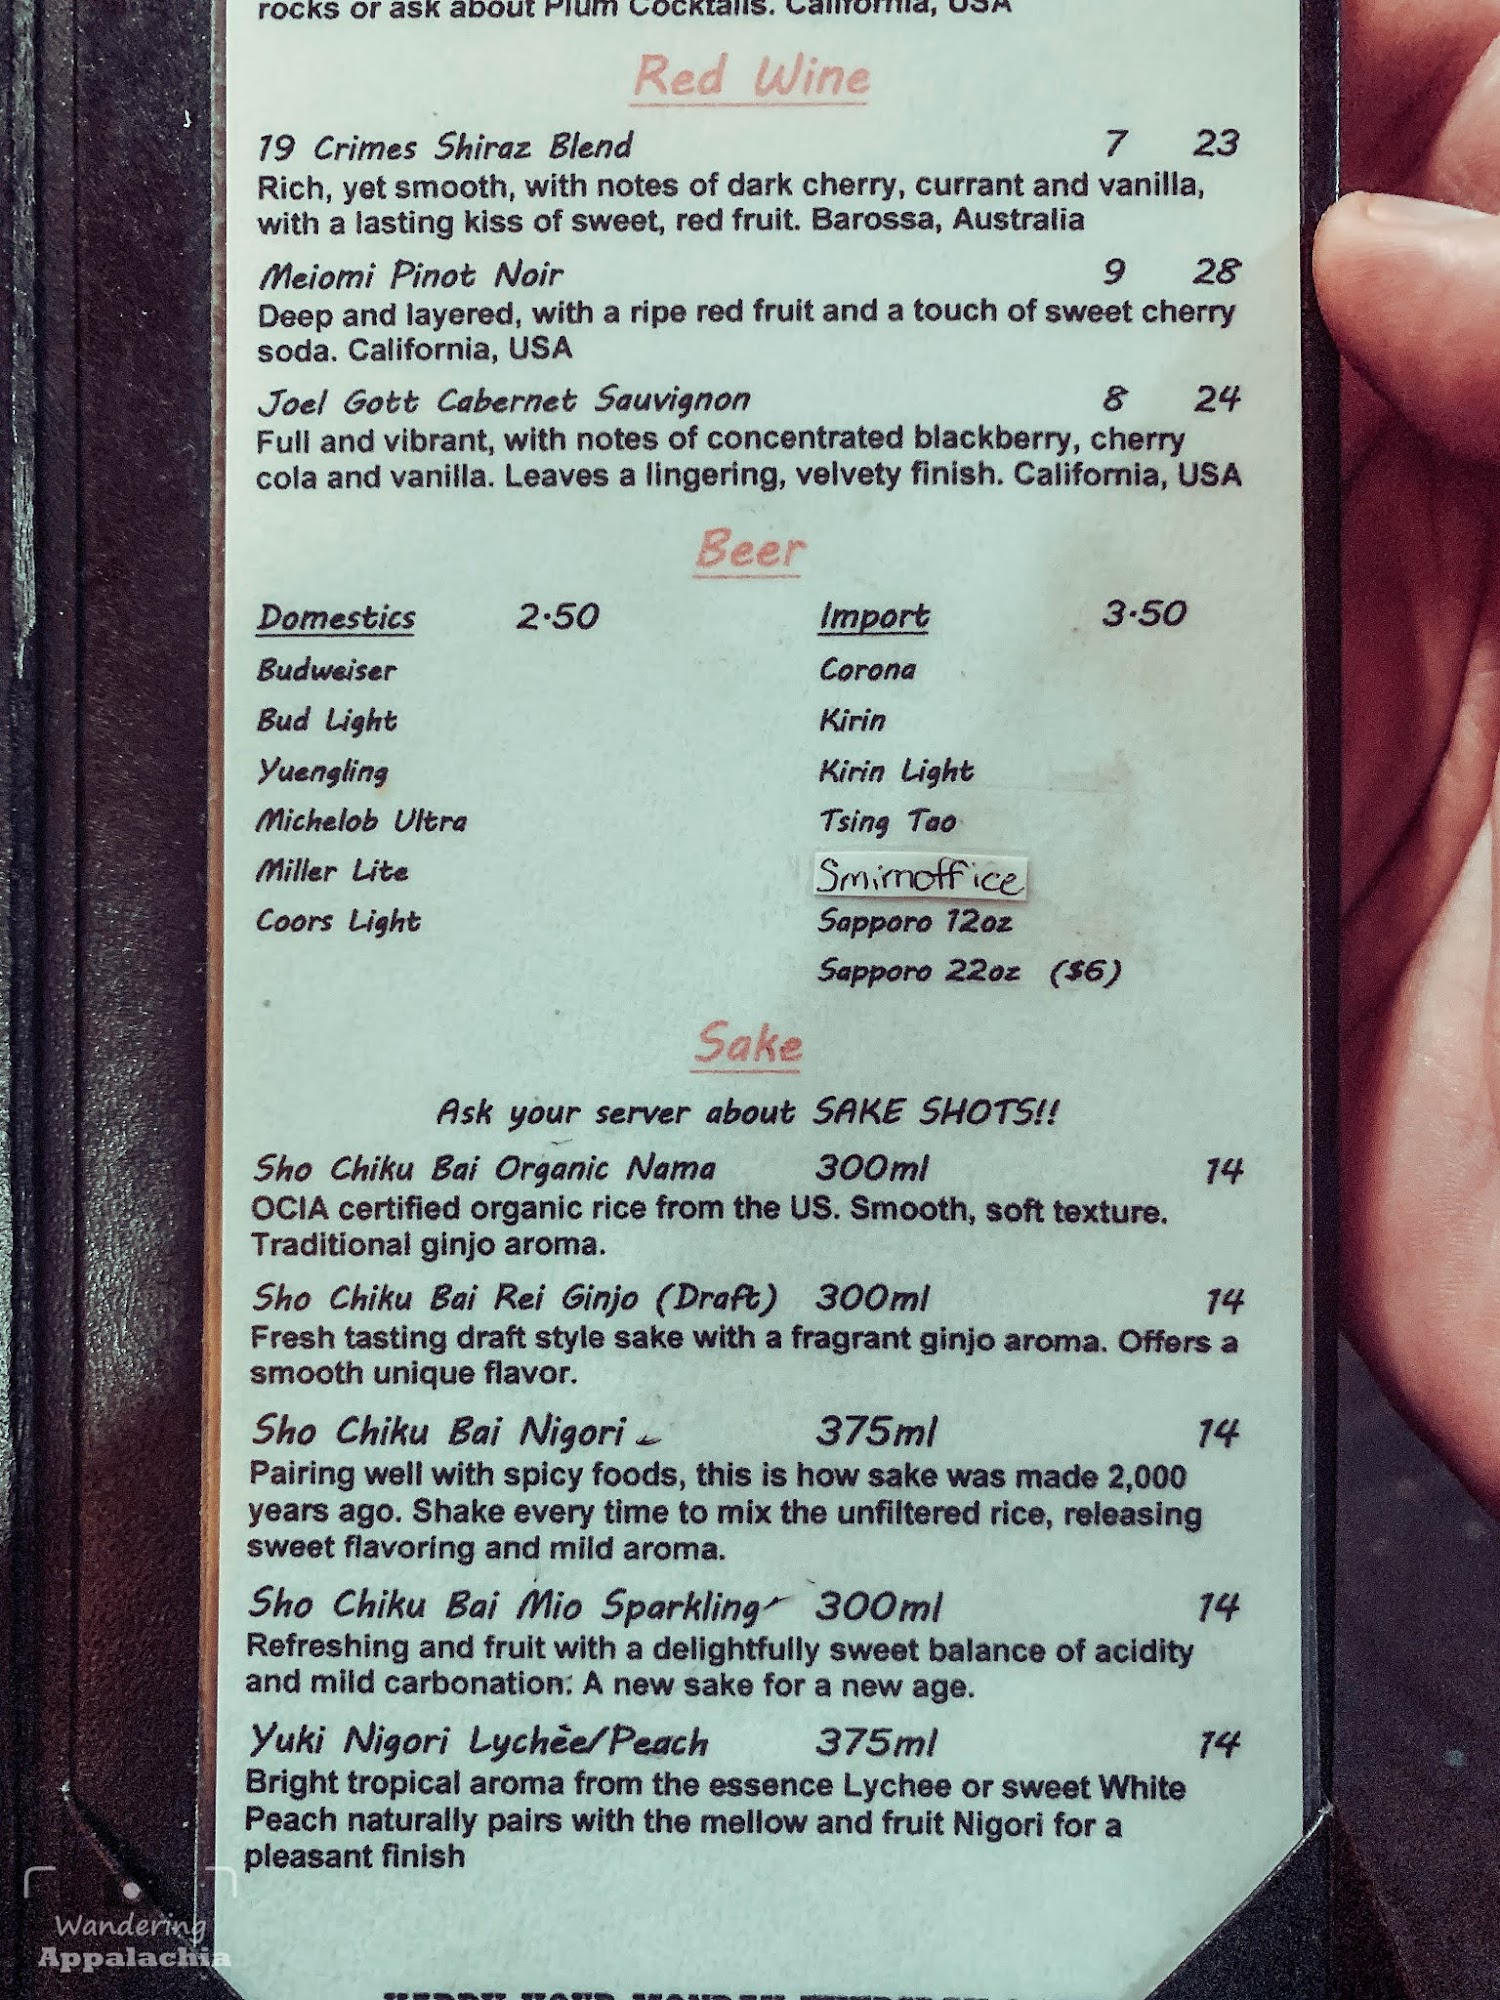 rocks or ask about Plum Cocktails. California, USA
Red Wine
19 Crimes Shiraz Blend 7 23
Rich, yet smooth, with notes of dark cherry, currant and vanilla,
with a lasting kiss of sweet, red fruit. Barossa, Australia
Meiomi Pinot Noir 9 28
Deep and layered, with a ripe red fruit and a touch of sweet cherry
soda. California, USA
Joel Gott Cabernet Sauvignon 8 24
Full and vibrant, with notes of concentrated blackberry, cherry
cola and vanilla. Leaves a lingering, velvety finish. California, USA
Beer
Domestics 2.50 Import 3.50
Budweiser Corona
Bud Light Kirin
Yuengling Kirin Light
Michelob Ultra Tsing Tao
Miller Lite Smirnoff ice
Coors Light Sapporo 12oz
Sapporo 22oz ($6)
Sake
Ask your server about SAKE SHOTS!!
Sho Chiku Bai Organic Nama 300ml 14
OCIA certified organic rice from the US. Smooth, soft texture.
Traditional ginjo aroma.
Sho Chiku Bai Rei Ginjo (Draft) 300ml 14
Fresh tasting draft style sake with a fragrant ginjo aroma. Offers a
smooth unique flavor.
Sho Chiku Bai Nigori 375ml 14
Pairing well with spicy foods, this is how sake was made 2,000
years ago. Shake every time to mix the unfiltered rice, releasing
sweet flavoring and mild aroma.
Sho Chiku Bai Mio Sparkling 300ml 14
Refreshing and fruit with a delightfully sweet balance of acidity
and mild carbonation. A new sake for a new age.
Yuki Nigori Lychee/Peach 375ml 14
Bright tropical aroma from the essence Lychee or sweet White
Peach naturally pairs with the mellow and fruit Nigori for a
pleasant finish
Wandering
Appalachia